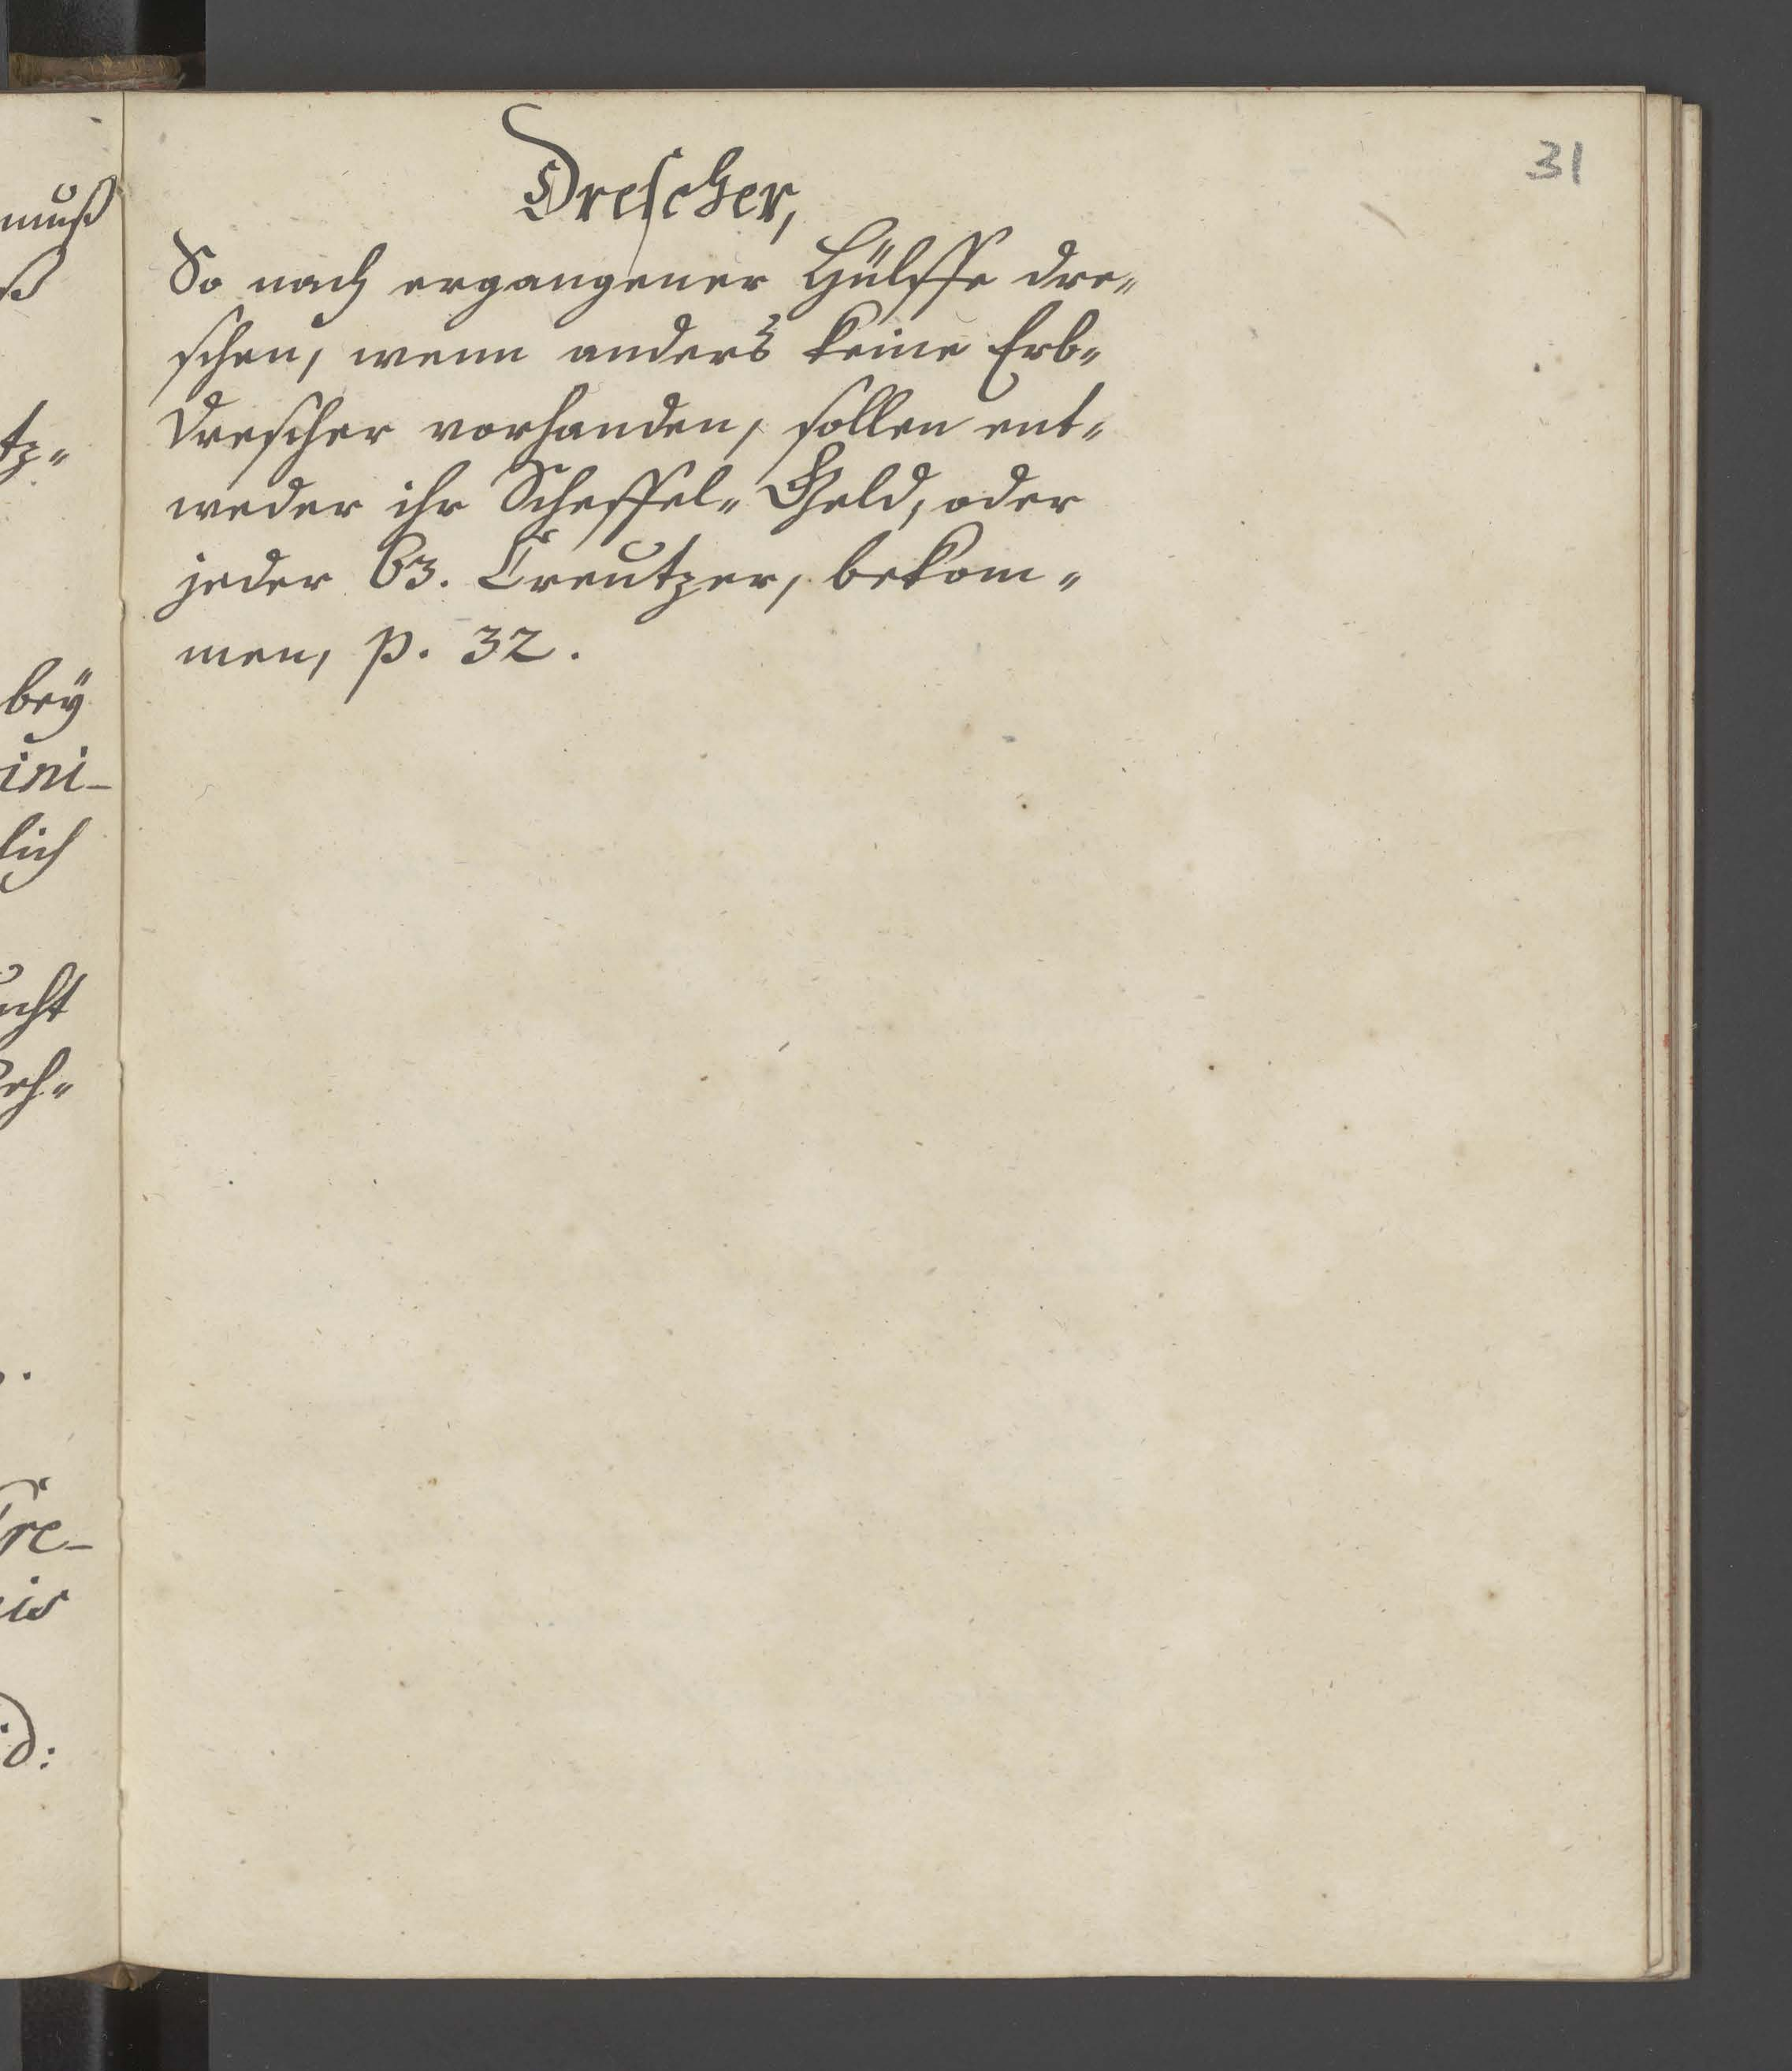 31
Drescher,
So nach ergangener Hülffe dre„
schen, wenn anders keine Erb„
Drescher vorhanden, sollen ent„
weder ihr Scheffel„ Geld, oder
jeder 63. Creutzer, bekom„
men, p. 32.
muß
ß
tz„
bey
ini-
lich
ucht
eh„
re-
is
id: